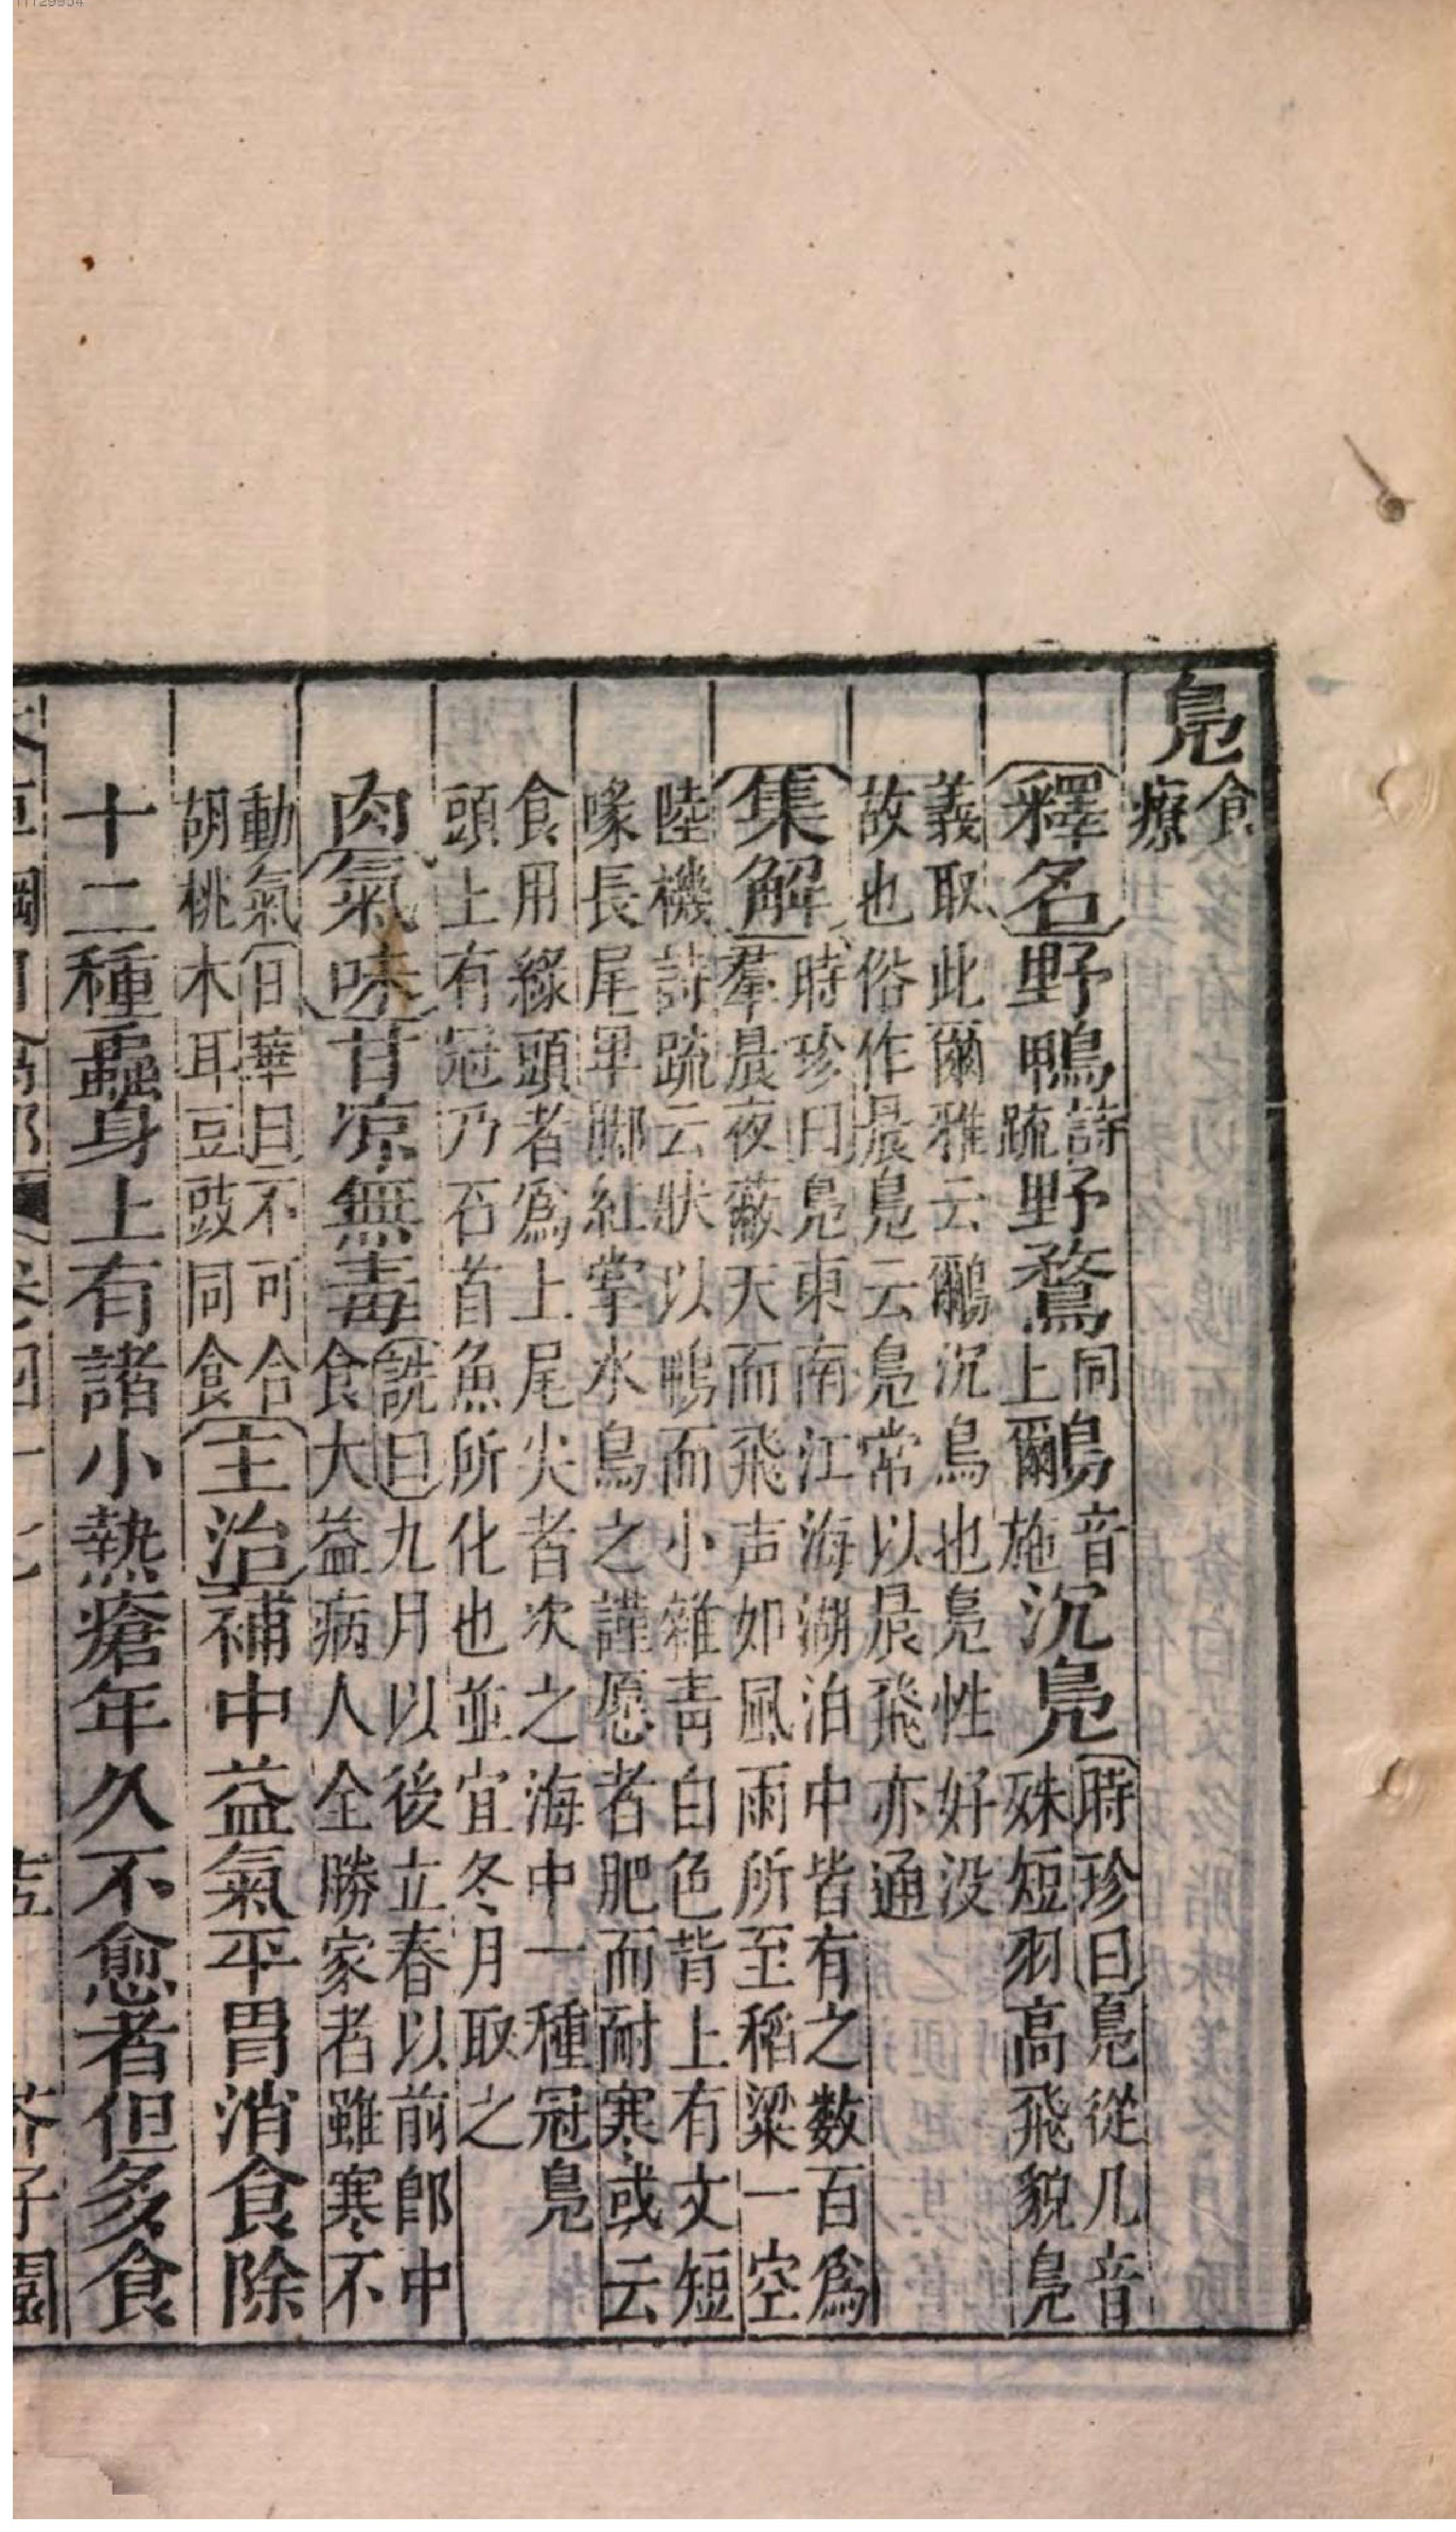 鳧食療
釋名野鴨詩疏野鶩同上鸍音施沉鳧時珍曰鳧從几音殊短羽高飛貌鳧
義取此爾雅云鸍沉鳥也鳧性好没
故也俗作晨鳧云鳧常以晨飛亦通
集解時珍曰鳧東南江海湖泊中皆有之数百爲羣晨夜蔽天而飛声如風雨所至稻粱一空
陸機詩疏云狀以鴨而小雜青白色背上有文短
喙長尾卑脚紅掌水鳥之謹愿者肥而耐寒或云
食用綠頭者爲上尾尖者次之海中一種冠鳧
頭上有冠乃石首魚所化也並宜冬月取之
肉氣味甘凉無毒詵曰九月以後立春以前卽中食大益病人全勝家者雖寒不
動氣日華曰不可合胡桃木耳豆豉同食主治補中益氣平胃消食除
十二種蟲身上有諸小熱瘡年久不愈者但多食